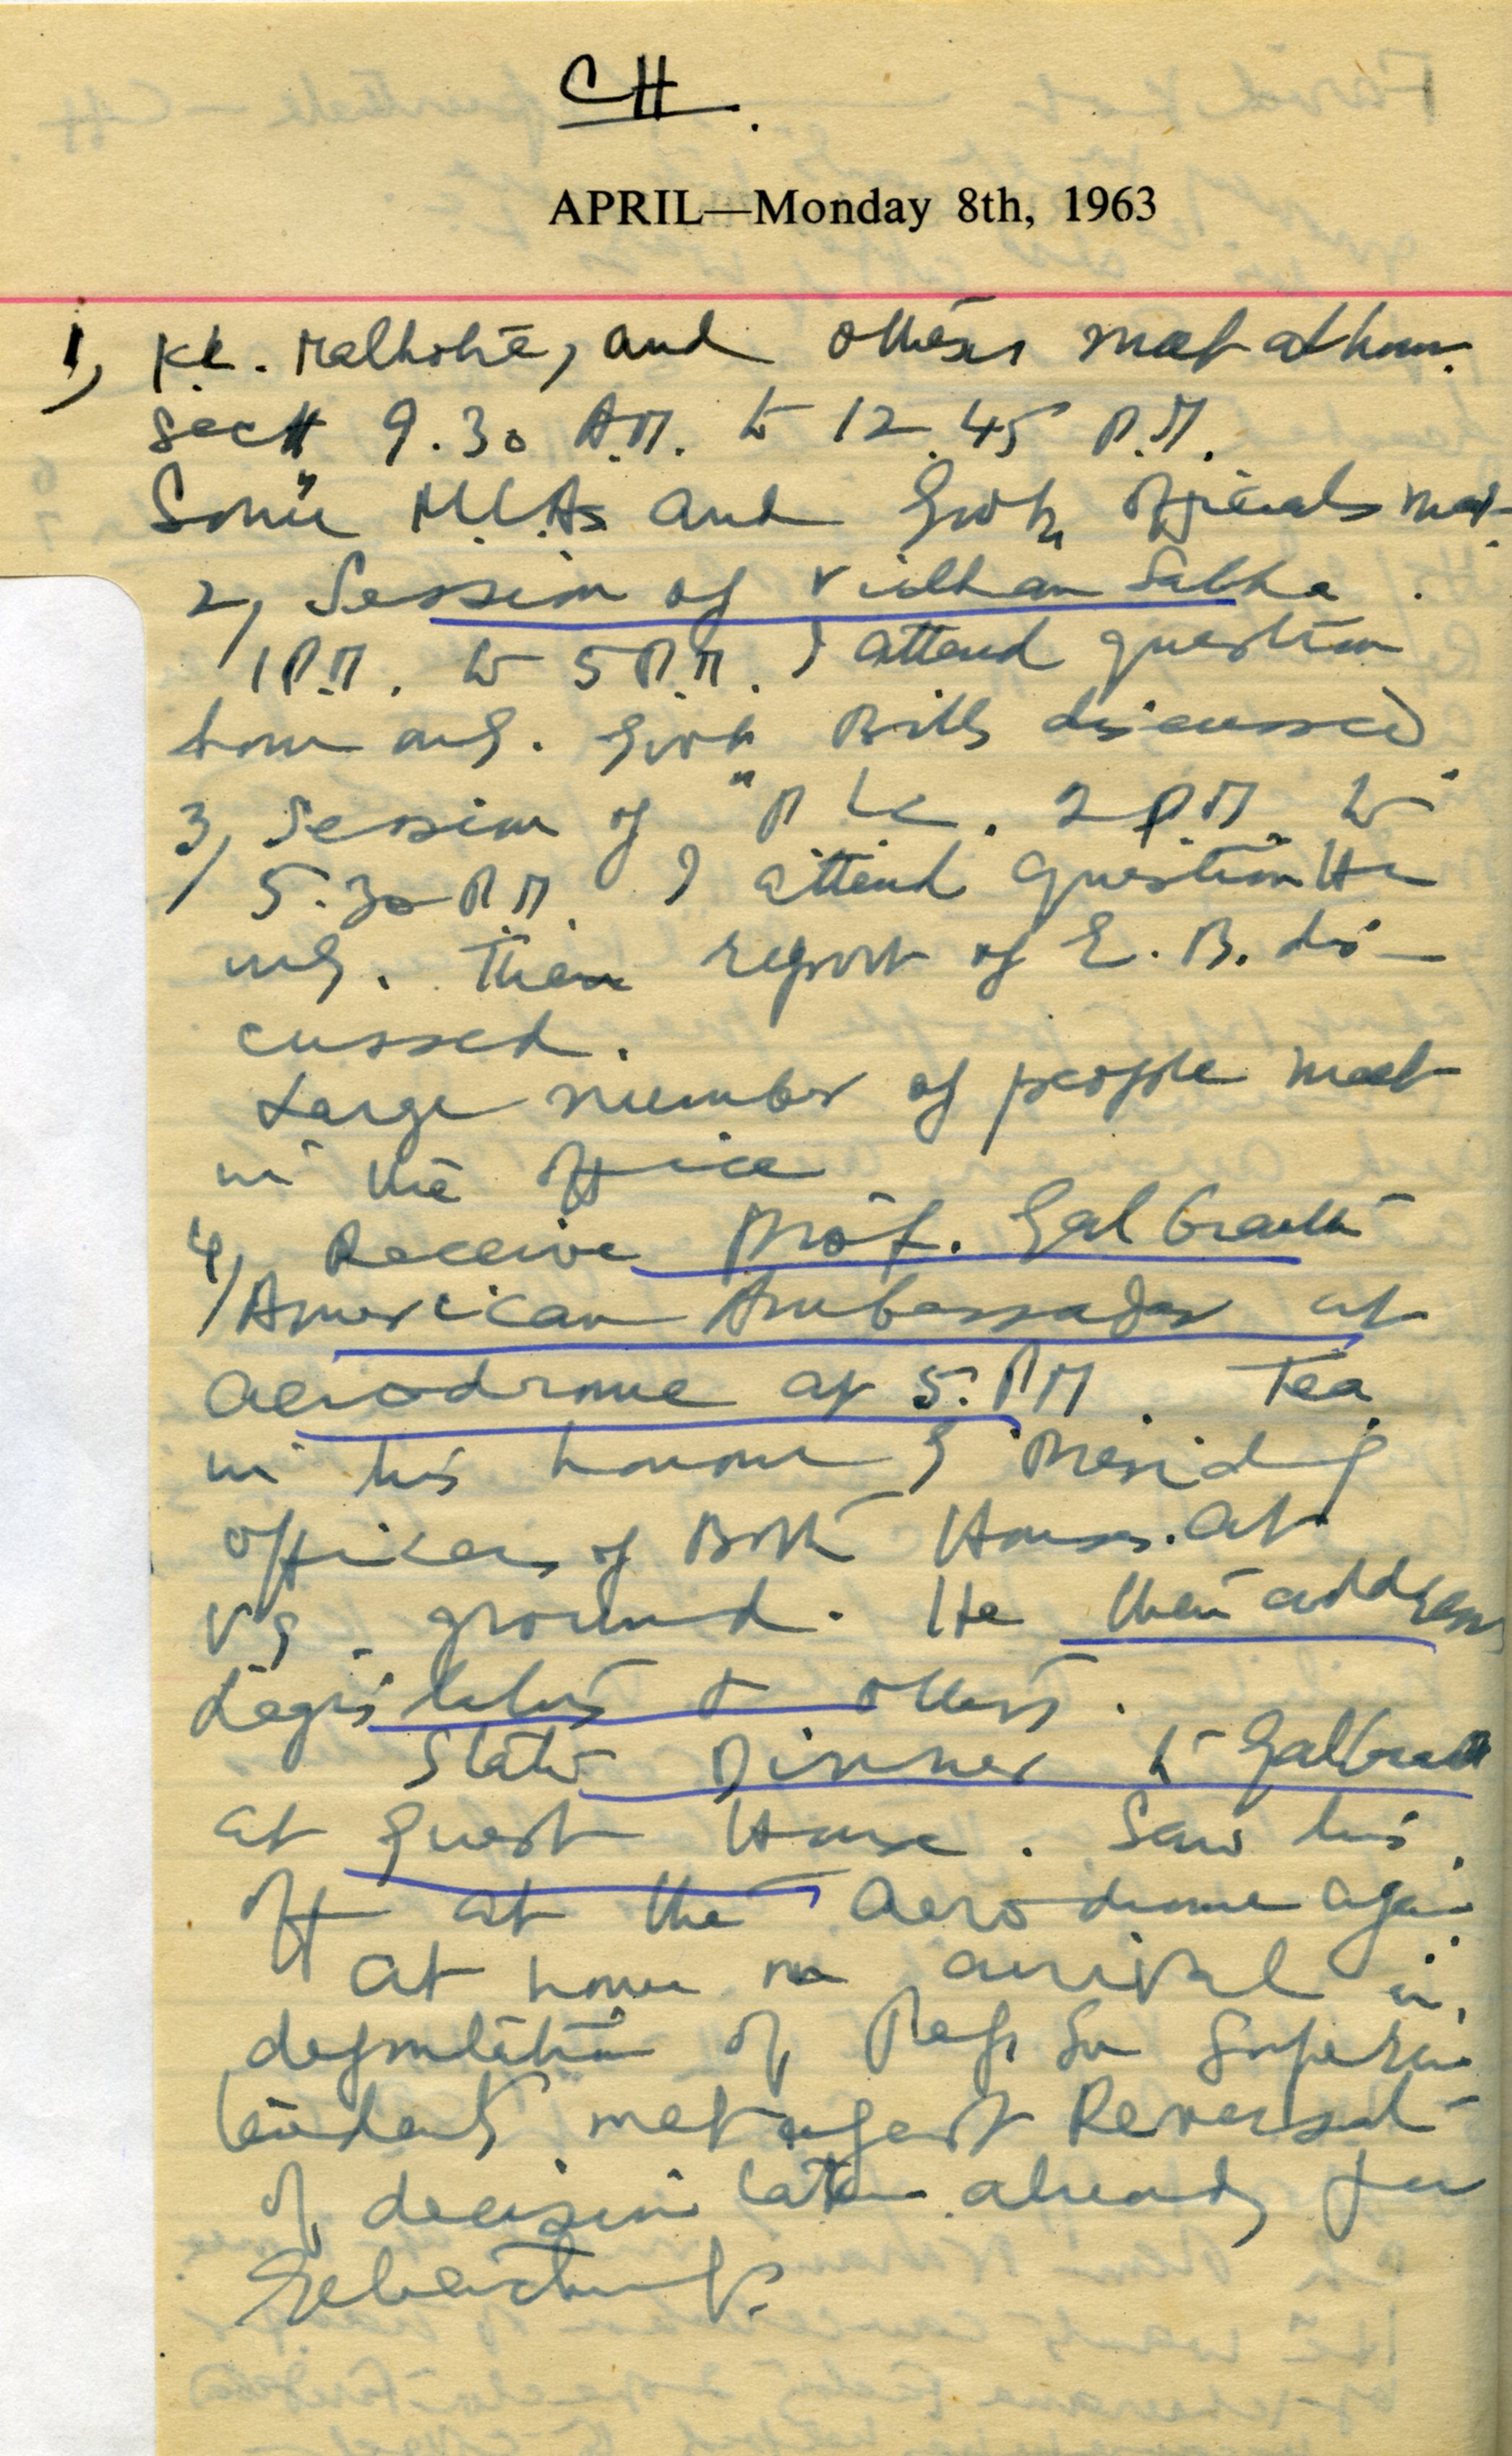 CH.
APRIL—Monday 8th, 1963
1, K.L. Malhotra, and others met at home.
Sectt 9.30 A.M. to 12.45 P.M.
Some M.L.As and Govt. officials met.
2, Session of Vidhan Sabha.
1 P.M. to 5 P.M. I attend question
hour only. Govt. Bills discussed
3, Session of P.L.C. 2 P.M. to
5.30 P.M. I attend question Hr
only. Then report of E.B. dis-
cussed.
Large number of people meet
in the office
4, Receive Prof. Galbraith
American Ambassador at
aerodrome at 5. P.M. Tea
in his honour by Presiding
officers of Both Houses. at
V.S. ground. He then address
Legislators & others.
State Dinner to Galbraith
at Guest House. Saw his
off at the aerodrome again
at home on arrival
deputation of Superin
tendents met against Reversal
of decision taken already for